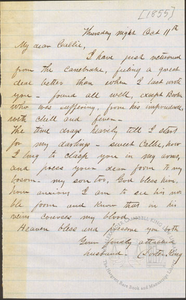 [1855]
Thursday night Oct 11th
My dear Callie,
I have just returned
from the canebrake, feeling a good
deal better than when I last wrote
you - found all well, except
who was suffering from his
with chill and fever -
The time drags heavily till I start
for my darlings - sweet Callie, how
I long to clasp you in my arms,
and press your dear form to my
bosom. My son too, God bless him,
how anxious I am to see his no-
ble form and know that in his
veins courses my blood.
Heaven bless and preserve you both
Your fondly attached
husband,